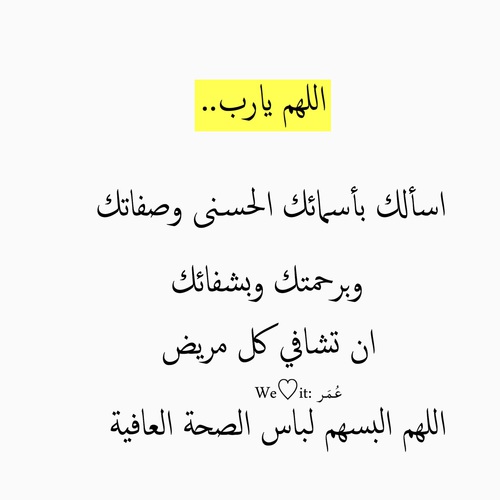 اللهم يارب..
اسألك بأسمائك الحسنى وصفاتك
وبرحمتك وبشفائك
ان تشافي كل مريض
We♡it: عُمَر
اللهم البسهم لباس الصحة العافية